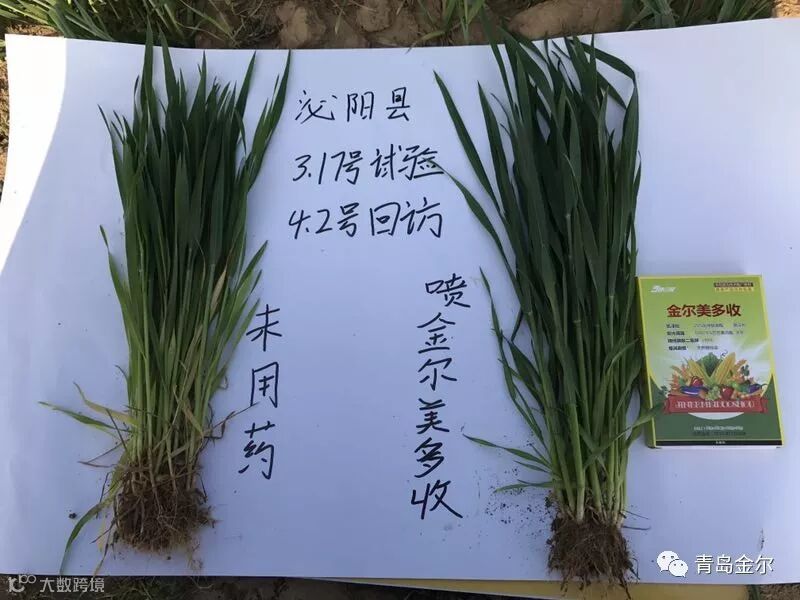 泌阳县
3.17号试验
4.2号回访
未用药
喷金尔美多收
金尔美多收
JINERMEIDUOSHOU
青岛金尔
10 大数跨境